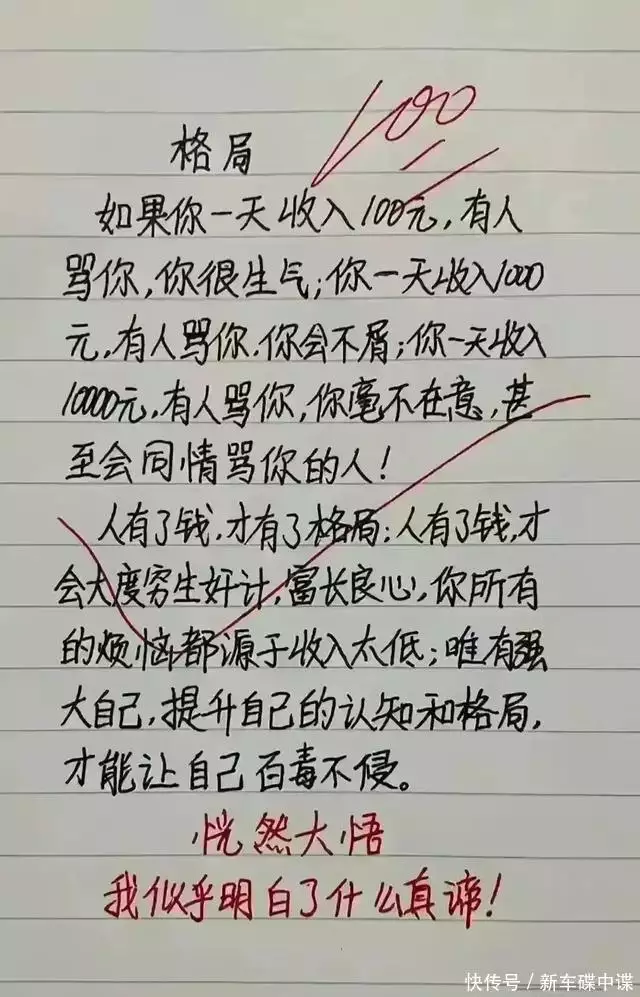 100
格局
如果你一天收入100元,有人
骂你,你很生气;你一天收入1000
元,有人骂你.你会不屑;你一天收入
10000元,有人骂你,你毫不在意,甚
至会同情骂你的人!
人有了钱,才有了格局;人有了钱,才
会大度穷生奸计,富长良心,你所有
的烦恼都源于收入太低;唯有强
大自己,提升自己的认知和格局,
才能让自己百毒不侵。
恍然大悟
我似乎明白了什么真谛!
快传号/新车碟中谍